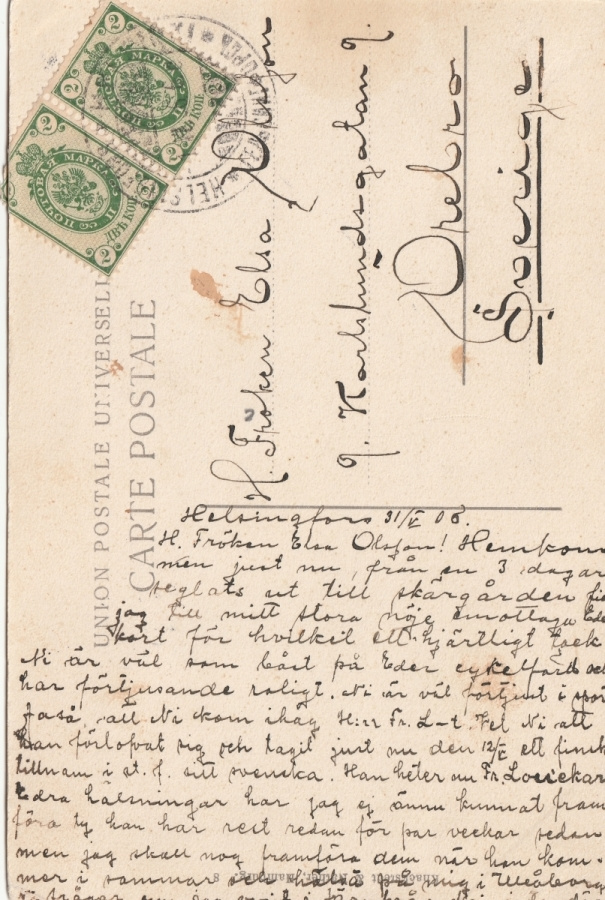 UNION POSTALE UNIVERSELLE
CARTE POSTALE
ПОЧТОВАЯ МАРКА
2
2
ДВѢ КОП
ПОЧТОВАЯ МАРКА
2
2
ДВѢ КОП
HELSI
H. Fröken Elsa Olsson
9. Karlslundsgatan 9.
Örebro
Sverige
Helsingfors 31/V 06.
H. Fröken Elsa Olsson! Hemkom
men just nu, från en 3 dagar
seglats ut till skärgården
jag till mitt stora nöje emottaga Eder
kort för hvilket ett hjärtligt tack
Ni är väl som bäst på Eder cykelfärd och
har förtjusande roligt. Ni är väl förtjust i spor
Jaså, att Ni kom ihåg Herr Fr. L-t. Vet Ni att
han förlofvat sig och tagit just nu den 12/V ett finsk
tillnamn i st. f. sitt svenska. Han heter nu Fr.
Edra hälsningar har jag ej ännu kunnat fram
föra ty han har rest redan för par veckor sedan
men jag skall nog framföra dem när han kom-
mer i sommar och hälsa på mig i Uleåborg
Knackstedt & Näther, Hamburg. 8